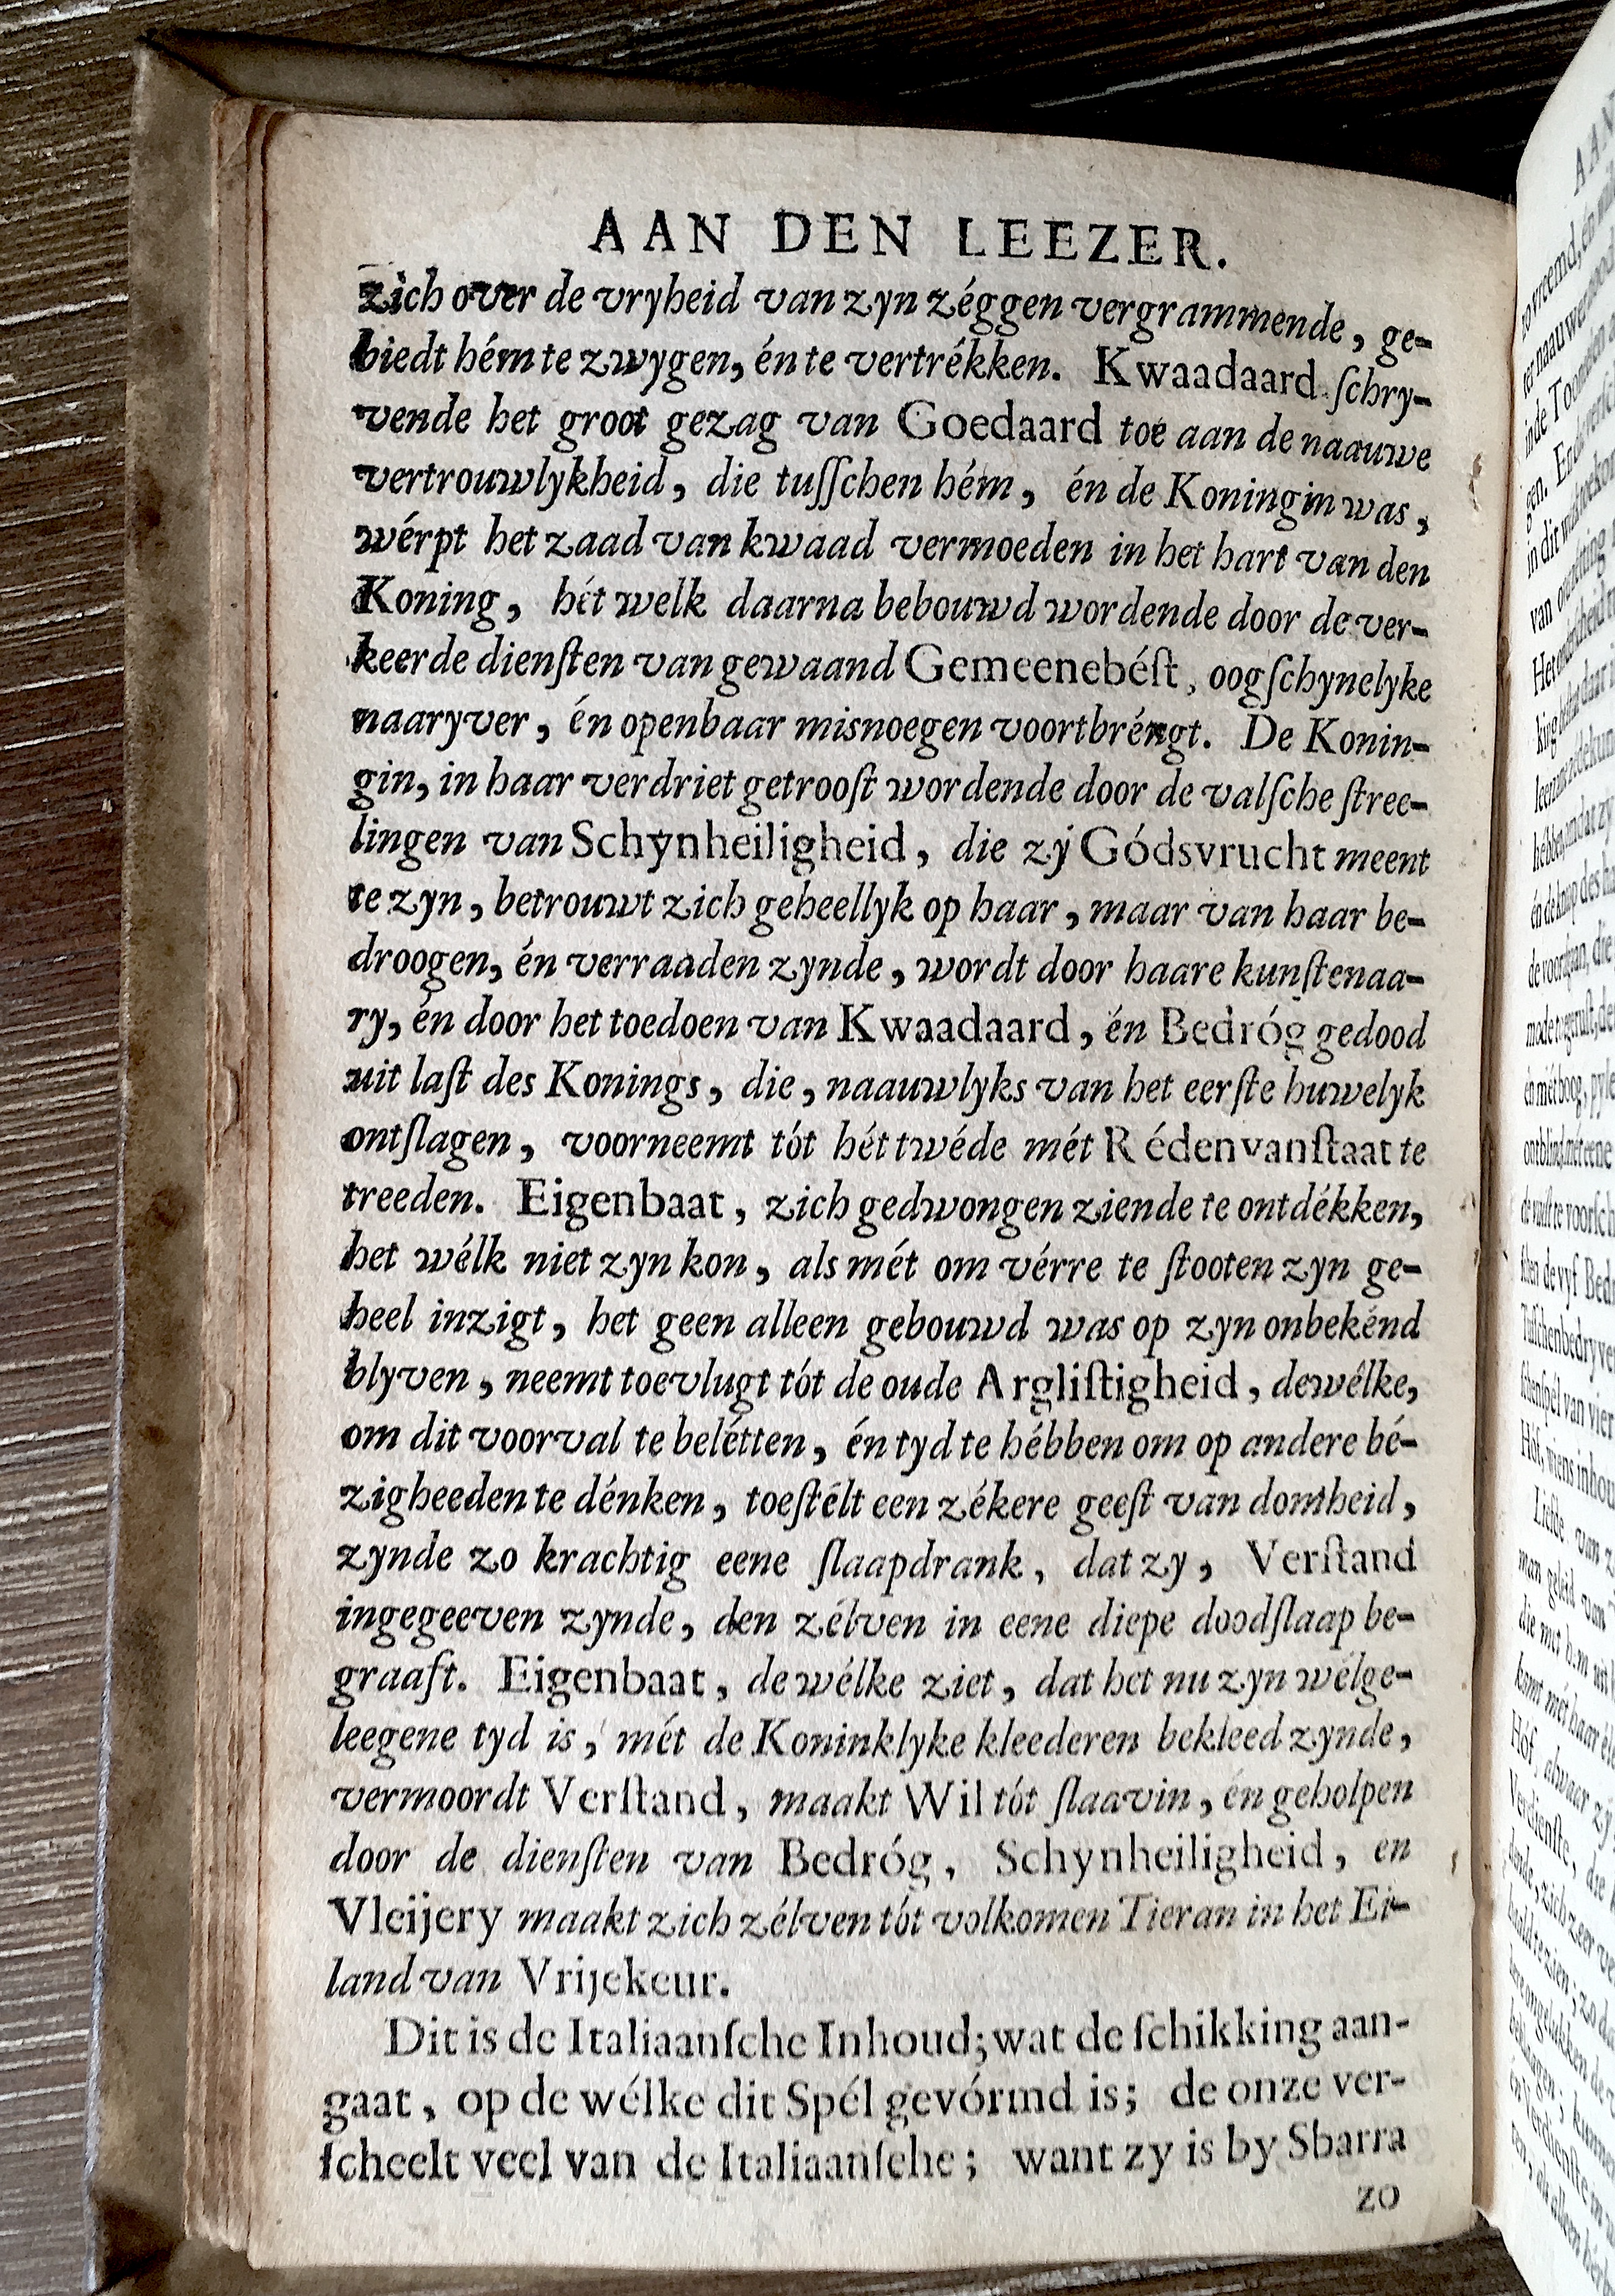 AAN DEN LEEZER.
zich over de vryheid van zyn zéggen vergrammende, ge-
biedt hém te zwygen, én te vertrékken. Kwaadaard ſchry-
vende het groot gezag van Goedaard toe aan de naauwe
vertrouwlykheid, die tuſſchen hém, én de Koningin was,
wérpt het zaad van kwaad vermoeden in het hart van den
Koning, hét welk daarna bebouwd wordende door de ver-
keerde dienſten van gewaand Gemeenebéſt, oogſchynelyke
naaryver, én openbaar misnoegen voortbréngt. De Konin-
gin, in haar verdriet getrooſt wordende door de valſche ſtree-
lingen van Schynheiligheid, die zy Gódsvrucht meent
te zyn, betrouwt zich geheellyk op haar, maar van haar be-
droogen, én verraaden zynde, wordt door haare kunſtenaa-
ry, én door het toedoen van Kwaadaard, én Bedróg gedood
uit laſt des Konings, die, naauwlyks van het eerſte huwelyk
ontſlagen, voorneemt tót hét twéde mét Rédenvanſtaat te
treeden. Eigenbaat, zich gedwongen ziende te ontdékken,
het wélk niet zyn kon, als mét om vérre te ſtooten zyn ge-
heel inzigt, het geen alleen gebouwd was op zyn onbekénd
blyven, neemt toevlugt tót de oude Argliſtigheid, dewélke,
om dit voorval te belétten, én tyd te hébben om op andere bé-
zigheeden te dénken, toeſtélt een zékere geeſt van domheid,
zynde zo krachtig eene ſlaapdrank, dat zy, Verſtand
ingegeeven zynde, den zélven in eene diepe doodſlaap be-
graaft. Eigenbaat, de wélke ziet, dat het nu zyn wélge-
leegene tyd is, mét de Koninklyke kleederen bekleed zynde,
vermoordt Verſtand, maakt Wil tót ſlaavin, én geholpen
door de dienſten van Bedróg, Schynheiligheid, en
Vleijery maakt zich zélven tót volkomen Tieran in het Ei-
land van Vrijekeur.
Dit is de Italiaanſche Inhoud; wat de ſchikking aan-
gaat, op de wélke dit Spél gevórmd is; de onze ver-
ſcheelt veel van de Italiaanſche; want zy is by Sbarra
zo